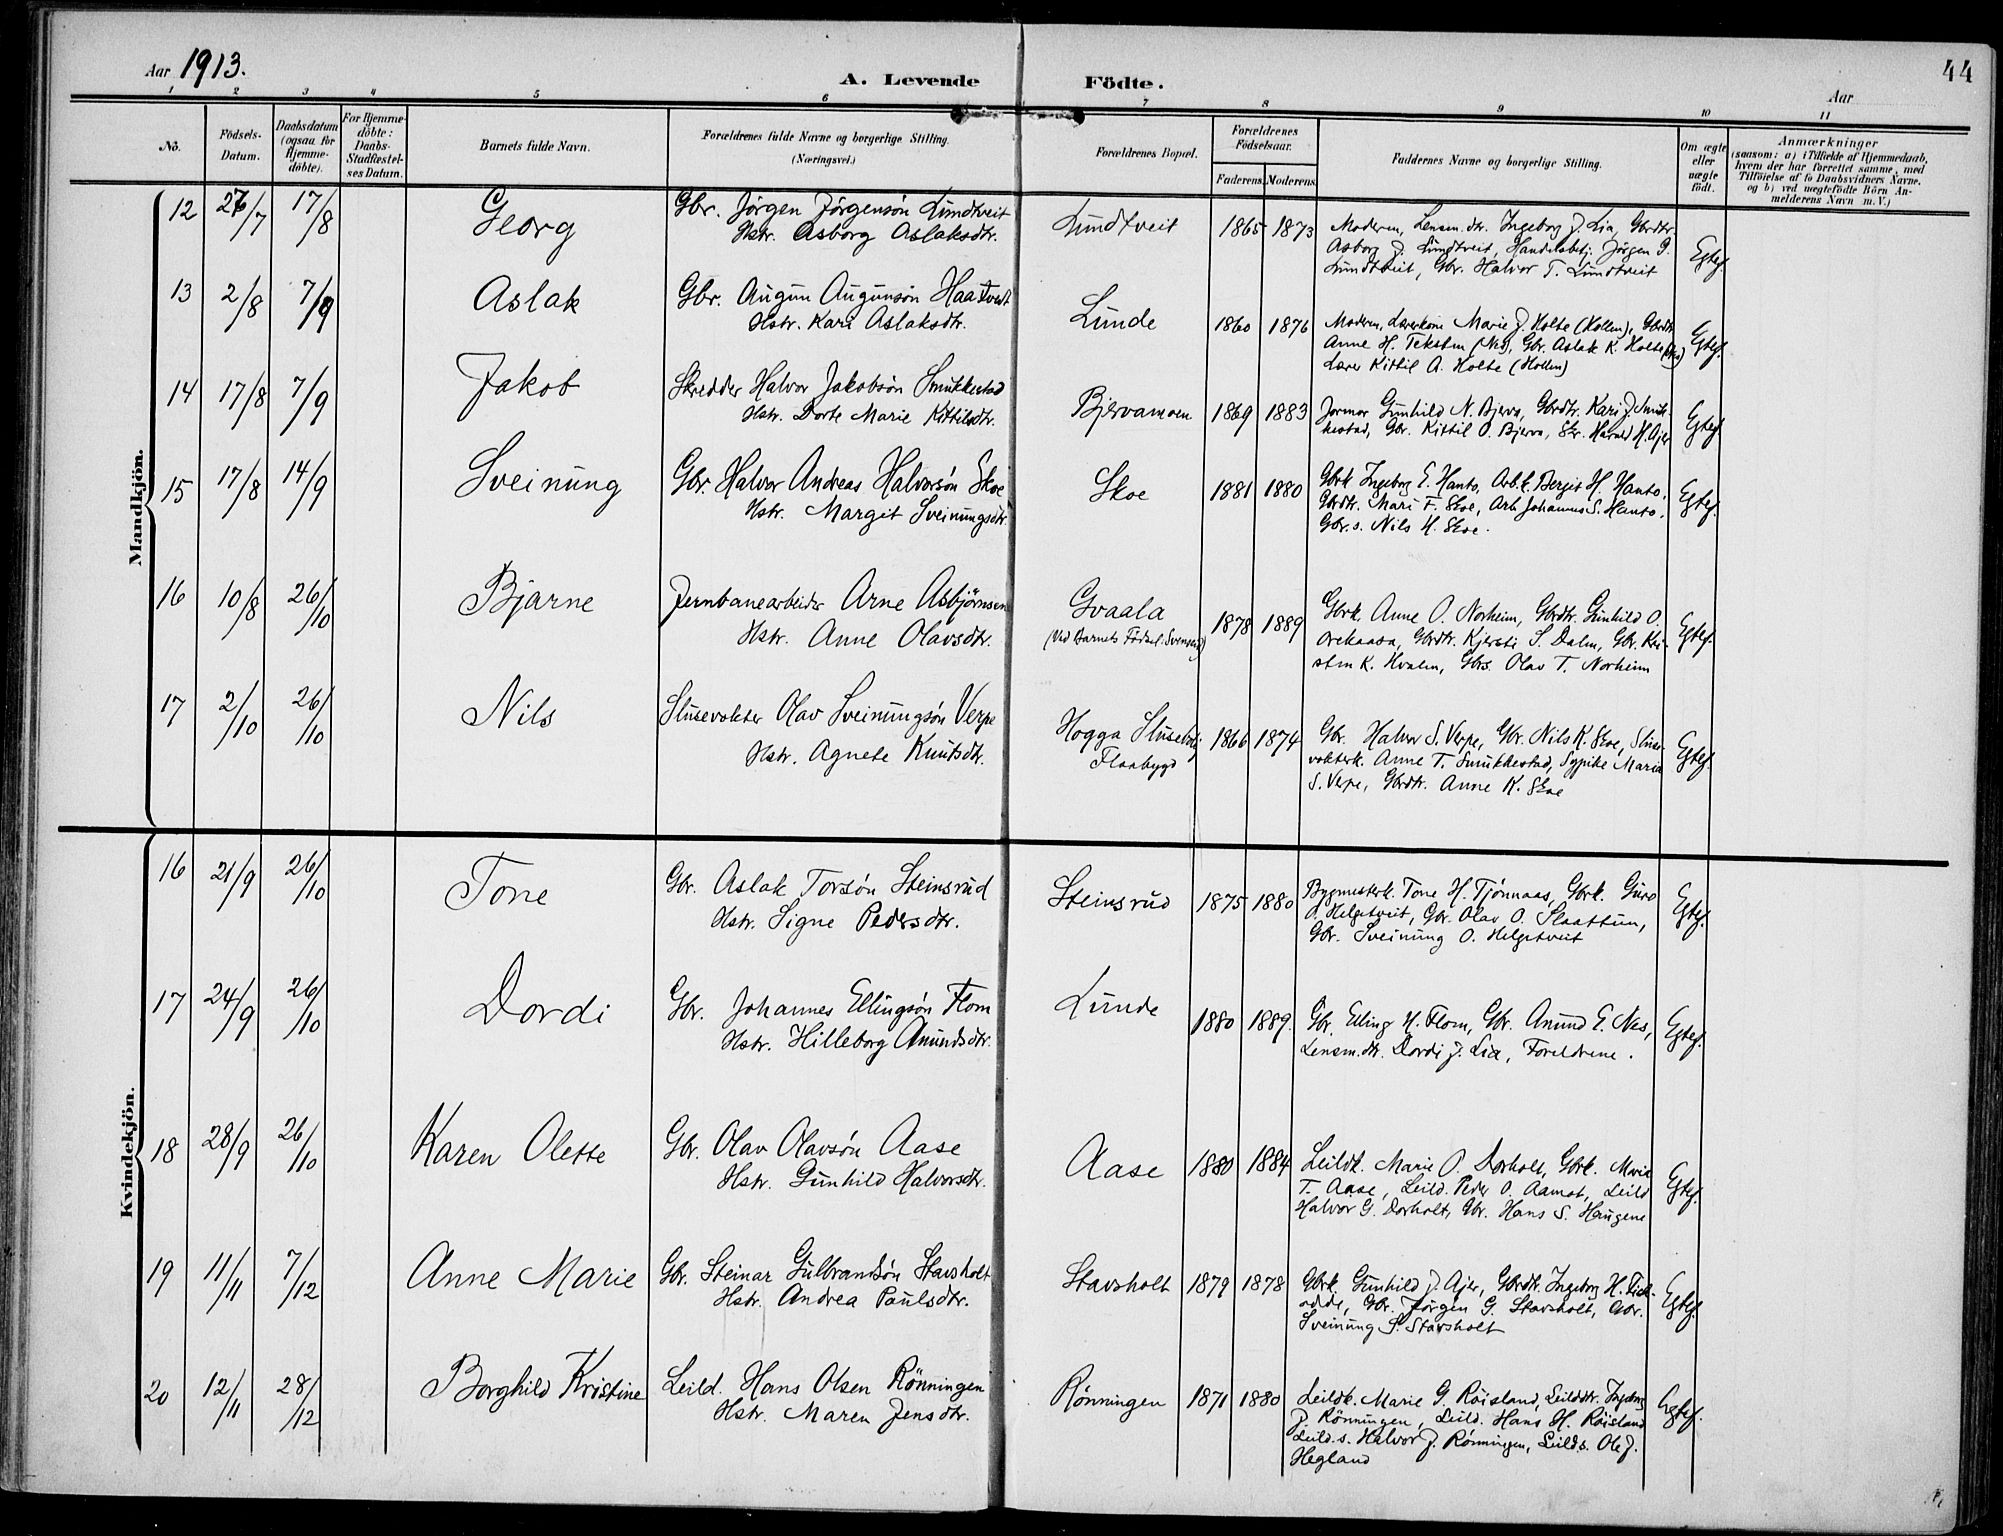 Aar 1913.
A. Levende Födte.
44
Aar
1 2 3 4 5 6 7 8 9 10 11
No.
Födsels-
Datum.
Daabsdatum
(ogsaa for
Hjemme-
döbte).
For Hjemme-
döbte:
Daabs-
Stadfæstel-
ses Datum.
Barnets fulde Navn.
Forældrenes fulde Navne og borgerlige Stilling.
(Næringsvei.)
Forældrenes Bopæl.
Forældrenes
Födselsaar.
Faderens. Moderens.
Faddernes Navne og borgerlige Stilling.
Om ægte
eller
uægte
födt.
Anmærkninger
(saasom: a) i Tilfælde af Hjemmedaab,
hvem der har forrettet samme, med
Tilföielse af to Daabsvidners Navne.
og b) ved uægtefödte Börn An-
melderens Navn m. V.)
Mandkjön.
12 26/7 17/8 Georg
Gbr. Jørgen Jørgensøn Lundtveit
Hstr. Asborg Aslaksdtr.
Lundtveit 1865 1873
Moderen, Lensm.dtr. Ingeborg J. Lia, Gbrdtr.
Asborg J. Lundtveit, Handelsbetj. Jørgen J.
Lundtveit, Gbr. Halvor T. Lundtveit
Egtef.
13 2/8 7/9 Aslak
Gbr. Augun Augunsøn Haatveit
Hstr. Kari Aslaksdtr.
Lunde 1860 1876
Moderen, Lærerkone Marie J. Holte (Hollen), Gbrdtr.
Anne H. Teksten (Nes), Gbr. Aslak K. Holte (Nes)
Lærer Kittil A. Holte (Hollen)
Egtef.
14 17/8 7/9 Jakob
Skredder Halvor Jakobsøn Smukkestad
Hstr. Dorte Marie Kittilsdtr.
Bjervamoen 1869 1883
Jormor Gunhild N. Bjerva, Gbrdtr. Kari J. Smuk-
kestad, Gbr. Kittil O. Bjerva, Skr. Harald H. Ajer
Egtef.
15 17/8 14/9 Sveinung
Gbr. Halvor Andreas Halvorsøn Skoe
Hstr. Margit Sveinungsdtr.
Skoe 1881 1880
Gbrk. Ingeborg E. Hanto, Arb.k. Bergit H. Hanto,
Gbrdtr. Mari F. Skoe, Arb. Johannes S. Hanto.
Gbr.s. Nils H. Skoe.
Egtef.
16 10/8 26/10 Bjarne
Jernbanearbeider Arne Asbjørnsen
Hstr. Anne Olavsdtr.
Gvaala
(Ved Barnets Fødsel: Svenseid)
1878 1889
Gbrk. Anne O. Norheim, Gbrdtr. Gunhild O.
Orekaasa, Gbrdtr. Kjersti S. Dalen, Gbr. Kri-
sten K. Hvalen, Gbrs. Olav T. Norheim
Egtef.
17 2/10 26/10 Nils
Slusevokter Olav Sveinungsøn Verpe
Hstr. Agnete Knutsdtr.
Hogga Slusebolig
Flaabygd
1866 1874
Gbr. Halvor S. Verpe, Gbr. Nils K. Skoe, Sluse-
vokterk. Anne T. Smukkestad, Sypike Maria
S. Verpe, Gbrdtr. Anne K. Skoe
Egtef.
Kvindekjön.
16 21/9 26/10 Tone
Gbr. Aslak Torsøn Steinsrud
Hstr. Signe Pedersdtr.
Steinsrud 1875 1880
Bygmesterk. Tone H. Tjønnaas, Gbrk. Guro
O. Helgetveit, Gbr. Olav O. Slaattun,
Gbr. Sveinung O. Helgetveit
Egtef.
17 24/9 26/10 Dordi
Gbr. Johannes Ellingsøn Flom
Hstr. Hilleborg Anundsdtr.
Lunde 1880 1889.
Gbr. Elling H. Flom, Gbr. Anund E. Nes,
Lensm.dtr. Dordi J. Lia, Foreldrene.
Egtef.
18 28/9 26/10 Karen Olette
Gbr. Olav Olavsøn Aase
Hstr. Gunhild Halvorsdtr.
Aase 1880 1884
Leildk. Marie O. Dorholt, Gbrk. Maria
T. Aase, Leild. Peder O. Aamot, Leild
Halvor G. Dorholt, Gbr. Hans S. Haugene
Egtef.
19 11/11 7/12 Anne Marie
Gbr. Steinar Gulbrandsøn Stavsholt
Hstr. Andrea Paulsdtr.
Stavsholt 1879 1878
Gbrk. Gunhild J. Ajer, Gbrdtr. Ingeborg H.
odde, Gbr. Jørgen G. Stavsholt, Gbr.
Sveinung S. Stavsholt
Egtef.
20 12/11 28/12 Borghild Kristine
Leild. Hans Olsen Rönningen
Hstr. Maren Jensdtr.
Rønningen 1871 1880
Leildk. Marie G. Røisland, Leilddtr. Ingeborg
J. Rönningen, Leild. Hans H. Røisland
Leild.s. Halvor J. Rönningen, Leilds. Ole J.
Hegland
Egtef.